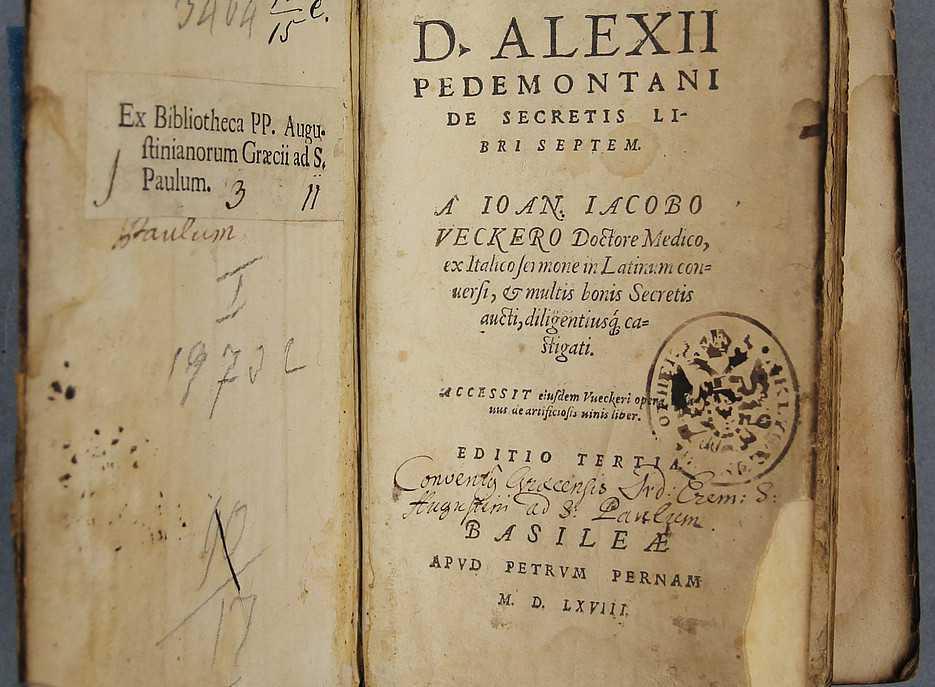 3464
15 e.
Ex Bibliotheca PP. Augu-
stinianorum Græcii ad S.
Paulum. 3 11
Paulum
I
D. ALEXII
PEDEMONTANI
DE SECRETIS LI-
BRI SEPTEM.
A IOAN. IACOBO
VECKERO Doctore Medico,
ex Italico sermone in Latinum con=
uersi, & multis bonis Secretis
aucti, diligentiusq́; ca=
stigati.
ACCESSIT eiusdem Vueckeri opera
uus de artificiosis uinis liber.
EDITIO TERTIA
Conventq Græcensis Ord: Erem: S:
Augustini ad S: Paulum
BASILEÆ
APVD PETRVM PERNAM
M. D. LXVIII.